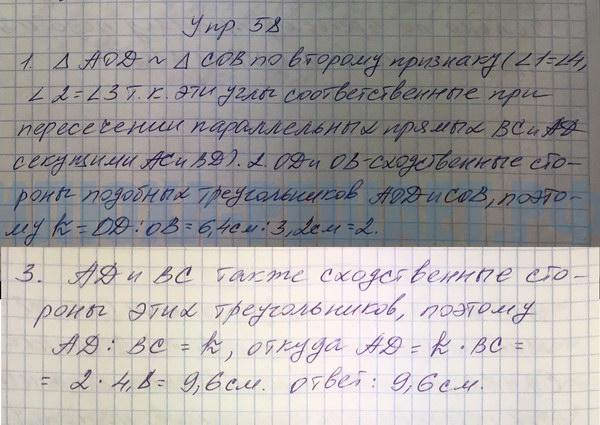 Упр. 58
1. Δ AOD ~ Δ COB по второму признаку (∠1=∠4,
∠2=∠3 т.к. эти углы соответственные при
пересечении параллельных прямых BC и AD
секущими AC и BD). 2 OD и OB-сходственные сто-
роны подобных треугольников AOD и COB, поэто-
му k = OD : OB = 6,4см : 3,2см = 2.
3. AD и BC также сходственные сто-
роны этих треугольников, поэтому
AD : BC = k, откуда AD = k · BC =
= 2 · 4,8 = 9,6 см. ответ: 9,6 см.